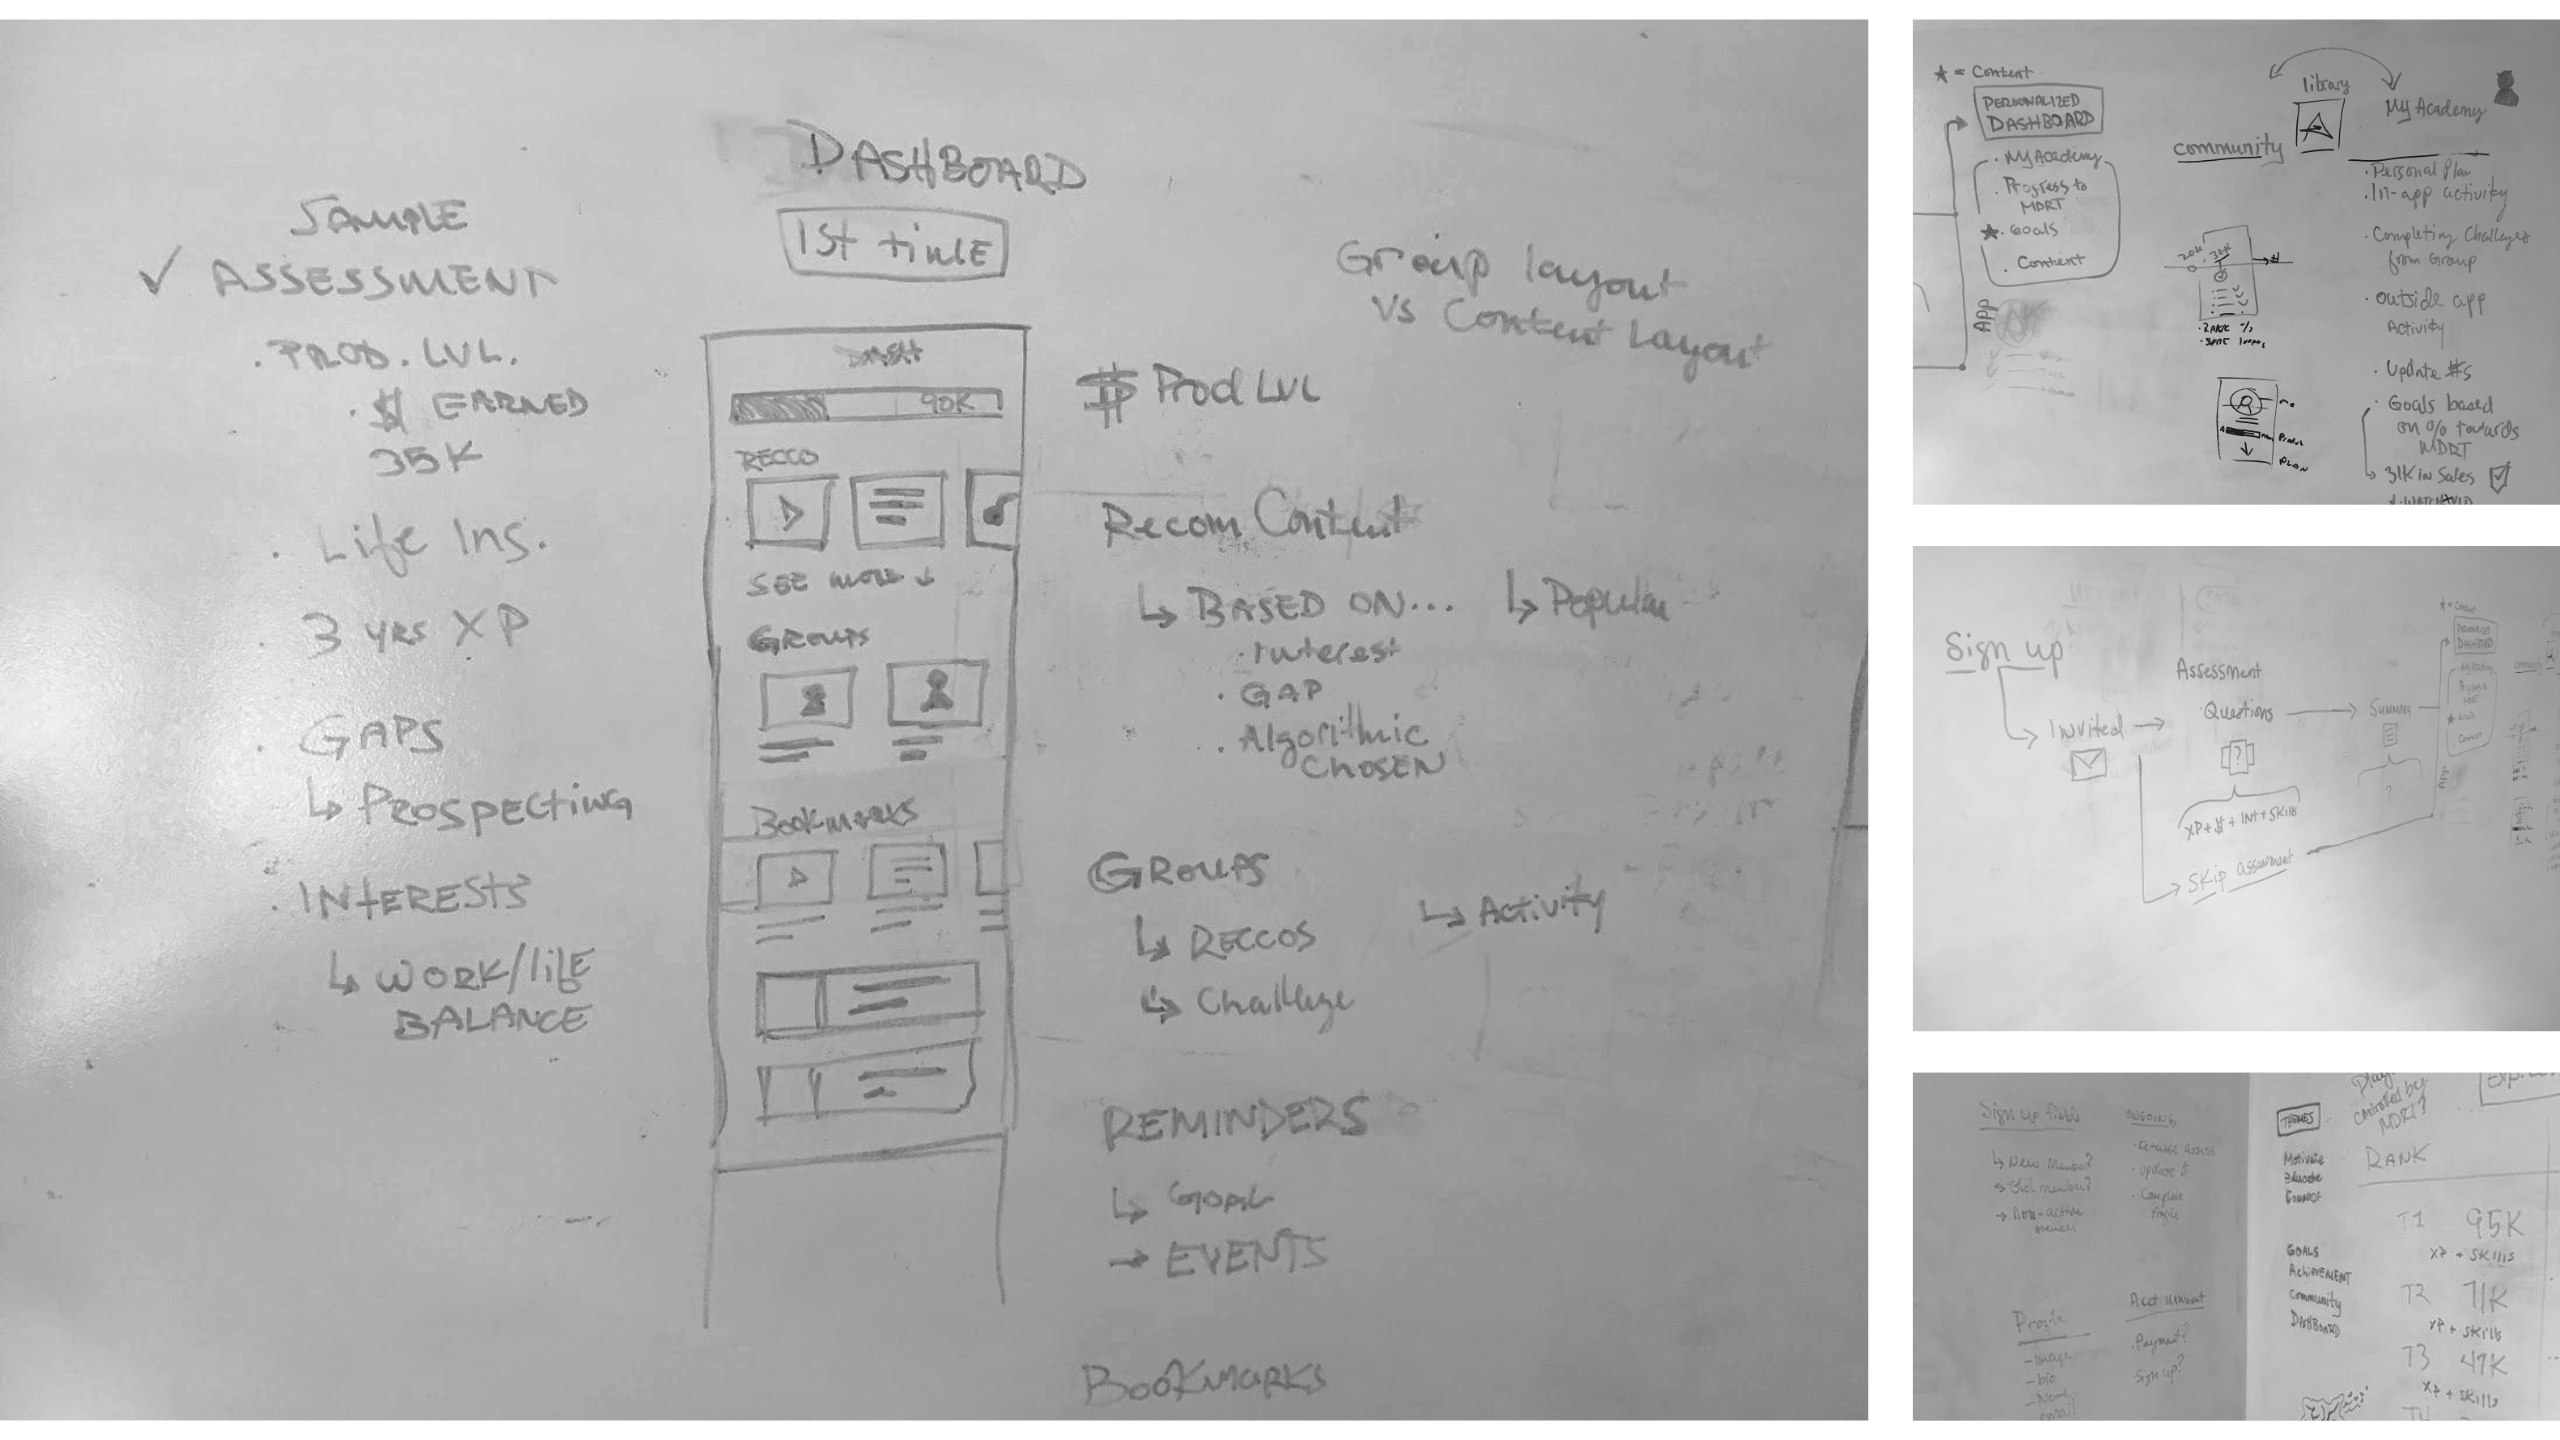 DASHBOARD
1ST TIME
SAMPLE
✓ ASSESSMENT
· PROD. LVL.
· $ EARNED
35K
· Life Ins.
· 3 YRS XP
· GAPS
↳ PROSPECTING
· INTERESTS
↳ WORK/LIFE
BALANCE
DASH
90K
RECCO
SEE MORE ↓
GROUPS
BOOKMARKS
Group layout
VS Content Layout
$ Prod LVL
Recom Content
↳ BASED ON...
· Interest
· GAP
· Algorithmic
CHOSEN
↳ Popular
GROUPS
↳ RECCOS
↳ Challenge
↳ Activity
REMINDERS
↳ GOAL
→ EVENTS
BOOKMARKS
★ = Content
PERSONALIZED
DASHBOARD
· My Academy
· Progress to
MDRT
★ · Goals
· Content
APP
community
library
A
My Academy
· Personal Plan
· In-app activity
· Completing Challenges
from Group
· outside app
Activity
· Update #s
· Goals based
on % towards
MDRT
↳ 31K in Sales
20K
30K
· RANK %
PLAN
Sign up
Invited →
Assessment
· Questions
?
XP + $ + INT + SKills
Skip assessment
Summary
?
★ = Content
PERSONALIZED
DASHBOARD
My Academy
Progress to
MDRT
★ Goals
Content
APP
Sign up fields
↳ New Member?
↳ Old member?
→ Non-active
member
ONGOING
· Update $
· Complete
Profile
Profile
- Image
- bio
- Name
email
· Payment?
· Sign up?
THEMES
Motivate
Educate
Connect
GOALS
AchiEVEMENT
Community
DASHBOARD
controlled by
MDRT?
RANK
T1 95K
XP + SKills
T2 71K
XP + SKills
T3 47K
XP + SKills
T4